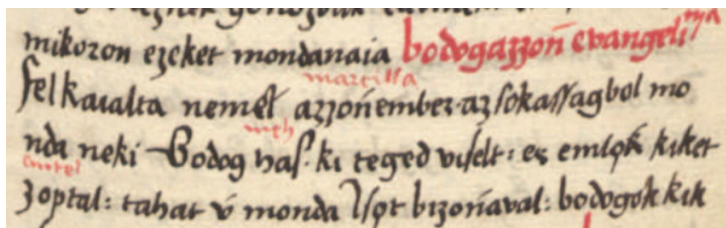 mikoron ezeket mondanaia bodogazzoń evangelima
marcilla
felkaialta nemel azzońember az sokassagbol mo
meh
nda neki Bodog has ki teged viselt: es emlok kiket
emtel
zoptal: tahat v́ monda Isot bizońaval: bodogok kik